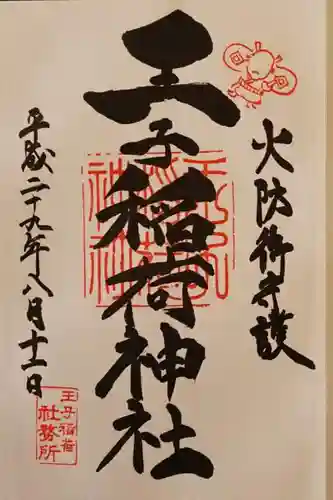 火防御守護
王子稲荷神社
平成二十九年八月十二日
王子稲荷
社務所